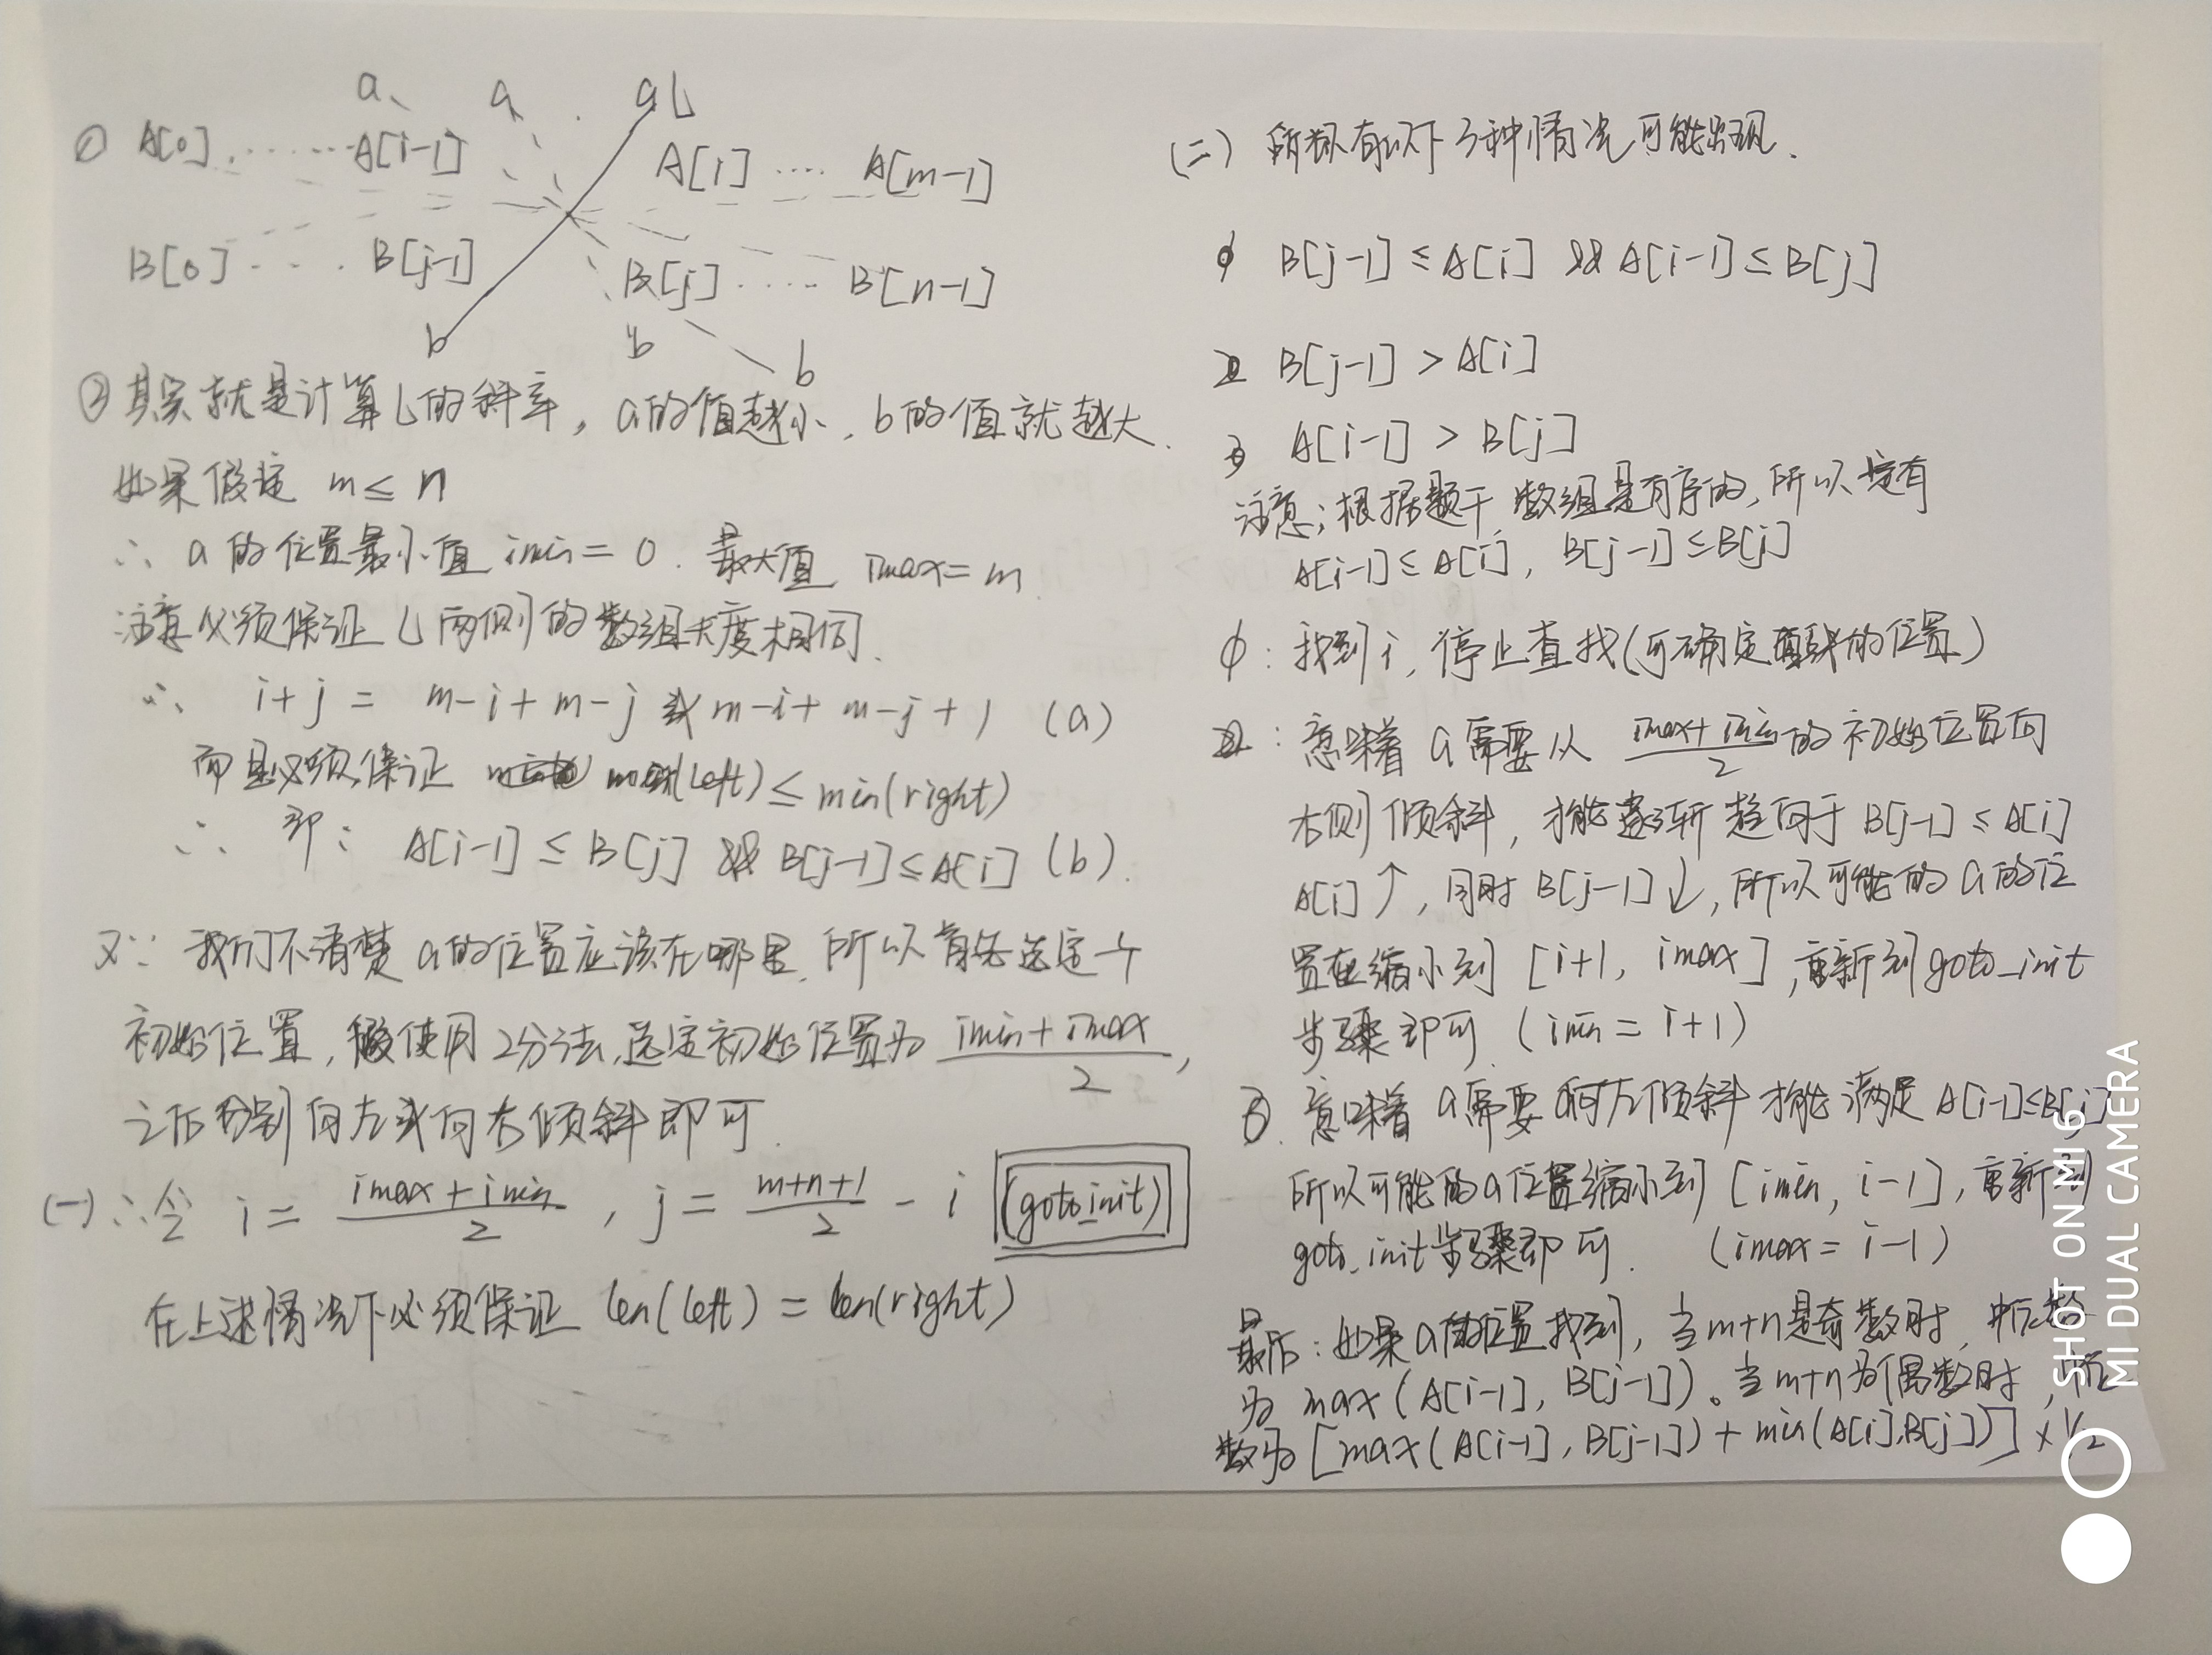 ① A[0] ...... A[i-1] A[i] ... A[m-1]
a a a L
B[0] ... B[j-1] B[j] .... B[n-1]
b b b
② 其实就是计算 L 的斜率, a的值越小、b的值就越大.
如果假定 m ≤ n
∴ a 的位置最小值 imin = 0. 最大值 imax = m
注意必须保证 L 两侧的数组长度相同.
∴ i+j = m-i+n-j 或 m-i+n-j+1 (a)
而且必须保证 max(left) ≤ min(right)
∴ 即: A[i-1] ≤ B[j] && B[j-1] ≤ A[i] (b).
又∵ 我们不清楚 a的位置应该在哪里. 所以首先选定一个
初始位置, 使用2分法, 选定初始位置为 imin+imax / 2,
之后分别向左或向右倾斜即可.
(一) ∴ 令 i = imax+imin / 2 , j = m+n+1 / 2 - i (goto_init)
在上述情况下必须保证 len(left) = len(right)
(二) 有以下三种情况可能出现.
1 B[j-1] ≤ A[i] && A[i-1] ≤ B[j]
2 B[j-1] > A[i]
3 A[i-1] > B[j]
注意: 根据题干 数组是有序的, 所以有
A[i-1] ≤ A[i], B[j-1] ≤ B[j]
1: 找到 i, 停止查找 (可确定的位置)
2: 意味着 a 需要从 imax+imin / 2 的初始位置向
右侧倾斜, 才能逐渐趋向于 B[j-1] ≤ A[i]
A[i] ↑, 同时 B[j-1] ↓, 所以可能的 a 的位
置在缩小到 [i+1, imax], 重新到 goto_init
步骤即可. (imin = i+1)
3. 意味着 a 需要向左倾斜才能满足 A[i-1] ≤ B[j]
所以可能的 a 位置缩小到 [imin, i-1], 重新到
goto_init 步骤即可. (imax = i-1)
最后: 如果 a 的位置找到, 当 m+n 是奇数时, 中位数
为 max(A[i-1], B[j-1])。当 m+n 为偶数时, 中位
数为 [max(A[i-1], B[j-1]) + min(A[i], B[j])] × 1/2
SHOT ON MI 6
MI DUAL CAMERA